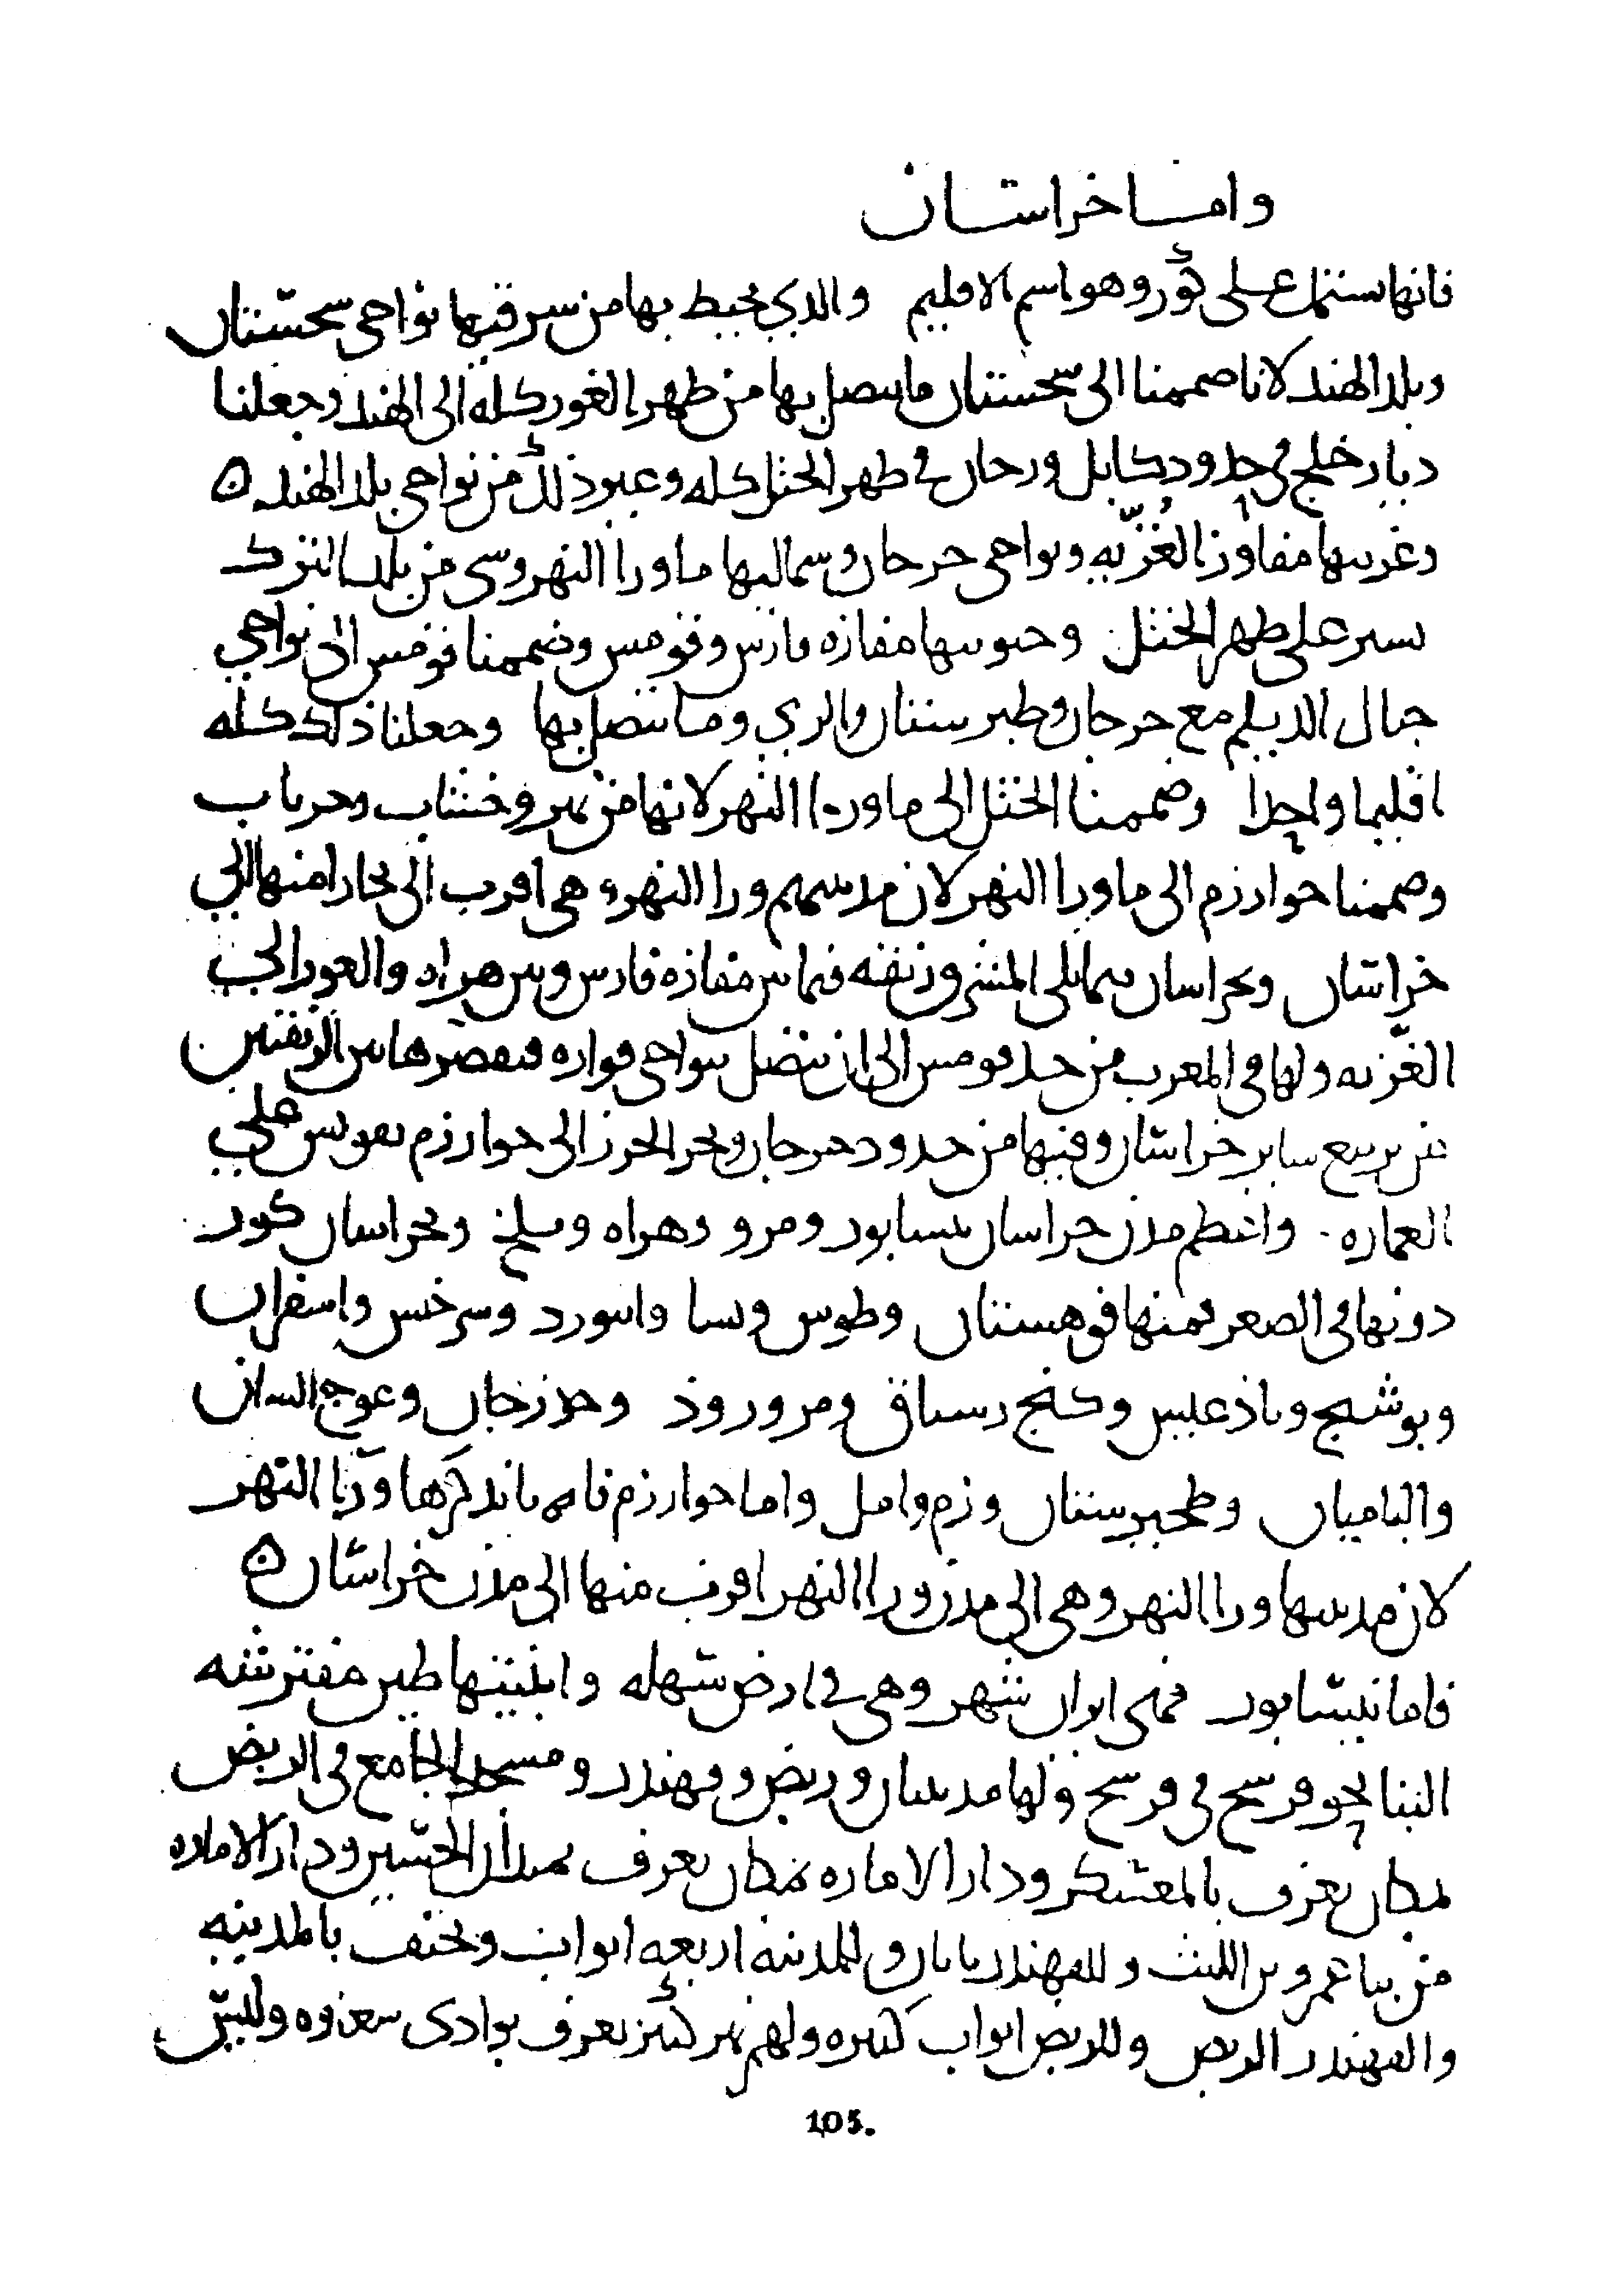 واما خراسان
فانها تشتمل على كور وهو اسم الاقليم والذي يحيط بها من شرقيها نواحي سجستان
وبلد الهند لانا ضممنا الى سجستان ما يتصل بها من ظهر الغور كله الى الهند وجعلنا
ديار خلج في حدود كابل وخان في ظهر الختل كله وغير ذلك من نواحي بلد الهند ه
وغربيها مفاوز الغزيه ونواحي جرجان وشماليها ما ورا النهر وشي من بلد الترك
يسير على ظهر الختل وجنوبيها مفازه فارس وقومس وضممنا قومس الى نواحي
جبال الديلم مع جرجان وطبرستان والري وما يتصل بها وجعلنا ذلك كله
اقليما واحدا وضممنا الختل الى ما ورا النهر لانها من نهر وخشاب وجرياب
وضممنا خوارزم الى ما ورا النهر لان مدينتهم ورا النهر وهي اقرب الى بخارا منها الي
خراسان وبخراسان مما يلي المشرق زنقه فيما بين مفازه فارس وبين هراه والغور الي
الغزيه ولها في المغرب من حد قومس الى ان تتصل بنواحي فراوه فيقصر هاتين الزنقتين
عن تربيع ساير خراسان وفيها من حدود جرجان وبحر الخزر الى خوارزم تقويس على
العماره واعظم مدن خراسان نيسابور ومرو وهراه وبلخ وبخراسان كور
دونها في الصغر فمنها قوهستان وطوس ونسا وابيورد وسرخس واسفراين
وبوشنج وباذغيس وكنج رستاق ومروروذ وجوزجان وغرج الشار
والباميان وطخيرستان وزم وامل واما خوارزم فانه يا نذكرها ورا النهر
لان مدينتها ورا النهر وهي الى مدن ورا النهر اقرب منها الى مدن خراسان ه
فاما نيسابور فهي ابران شهر وهي في ارض سهله وابنيتها طين مفترشه
البنا نحو فرسخ في فرسخ ولها مدينتان وربض وقهندز ومسجد الجامع في الربض
بمكان يعرف بالمعسكر ودار الاماره بمكان يعرف بميدان الحسين ودار الاماره
من بنا عمرو بن الليث وللقهندز بابان وللمدينه اربعه ابواب ويحتف بالمدينه
والقهندز الربض وللربض ابواب كثيره ولهم نهر كبير يعرف بوادي سغاوه وليس
105.